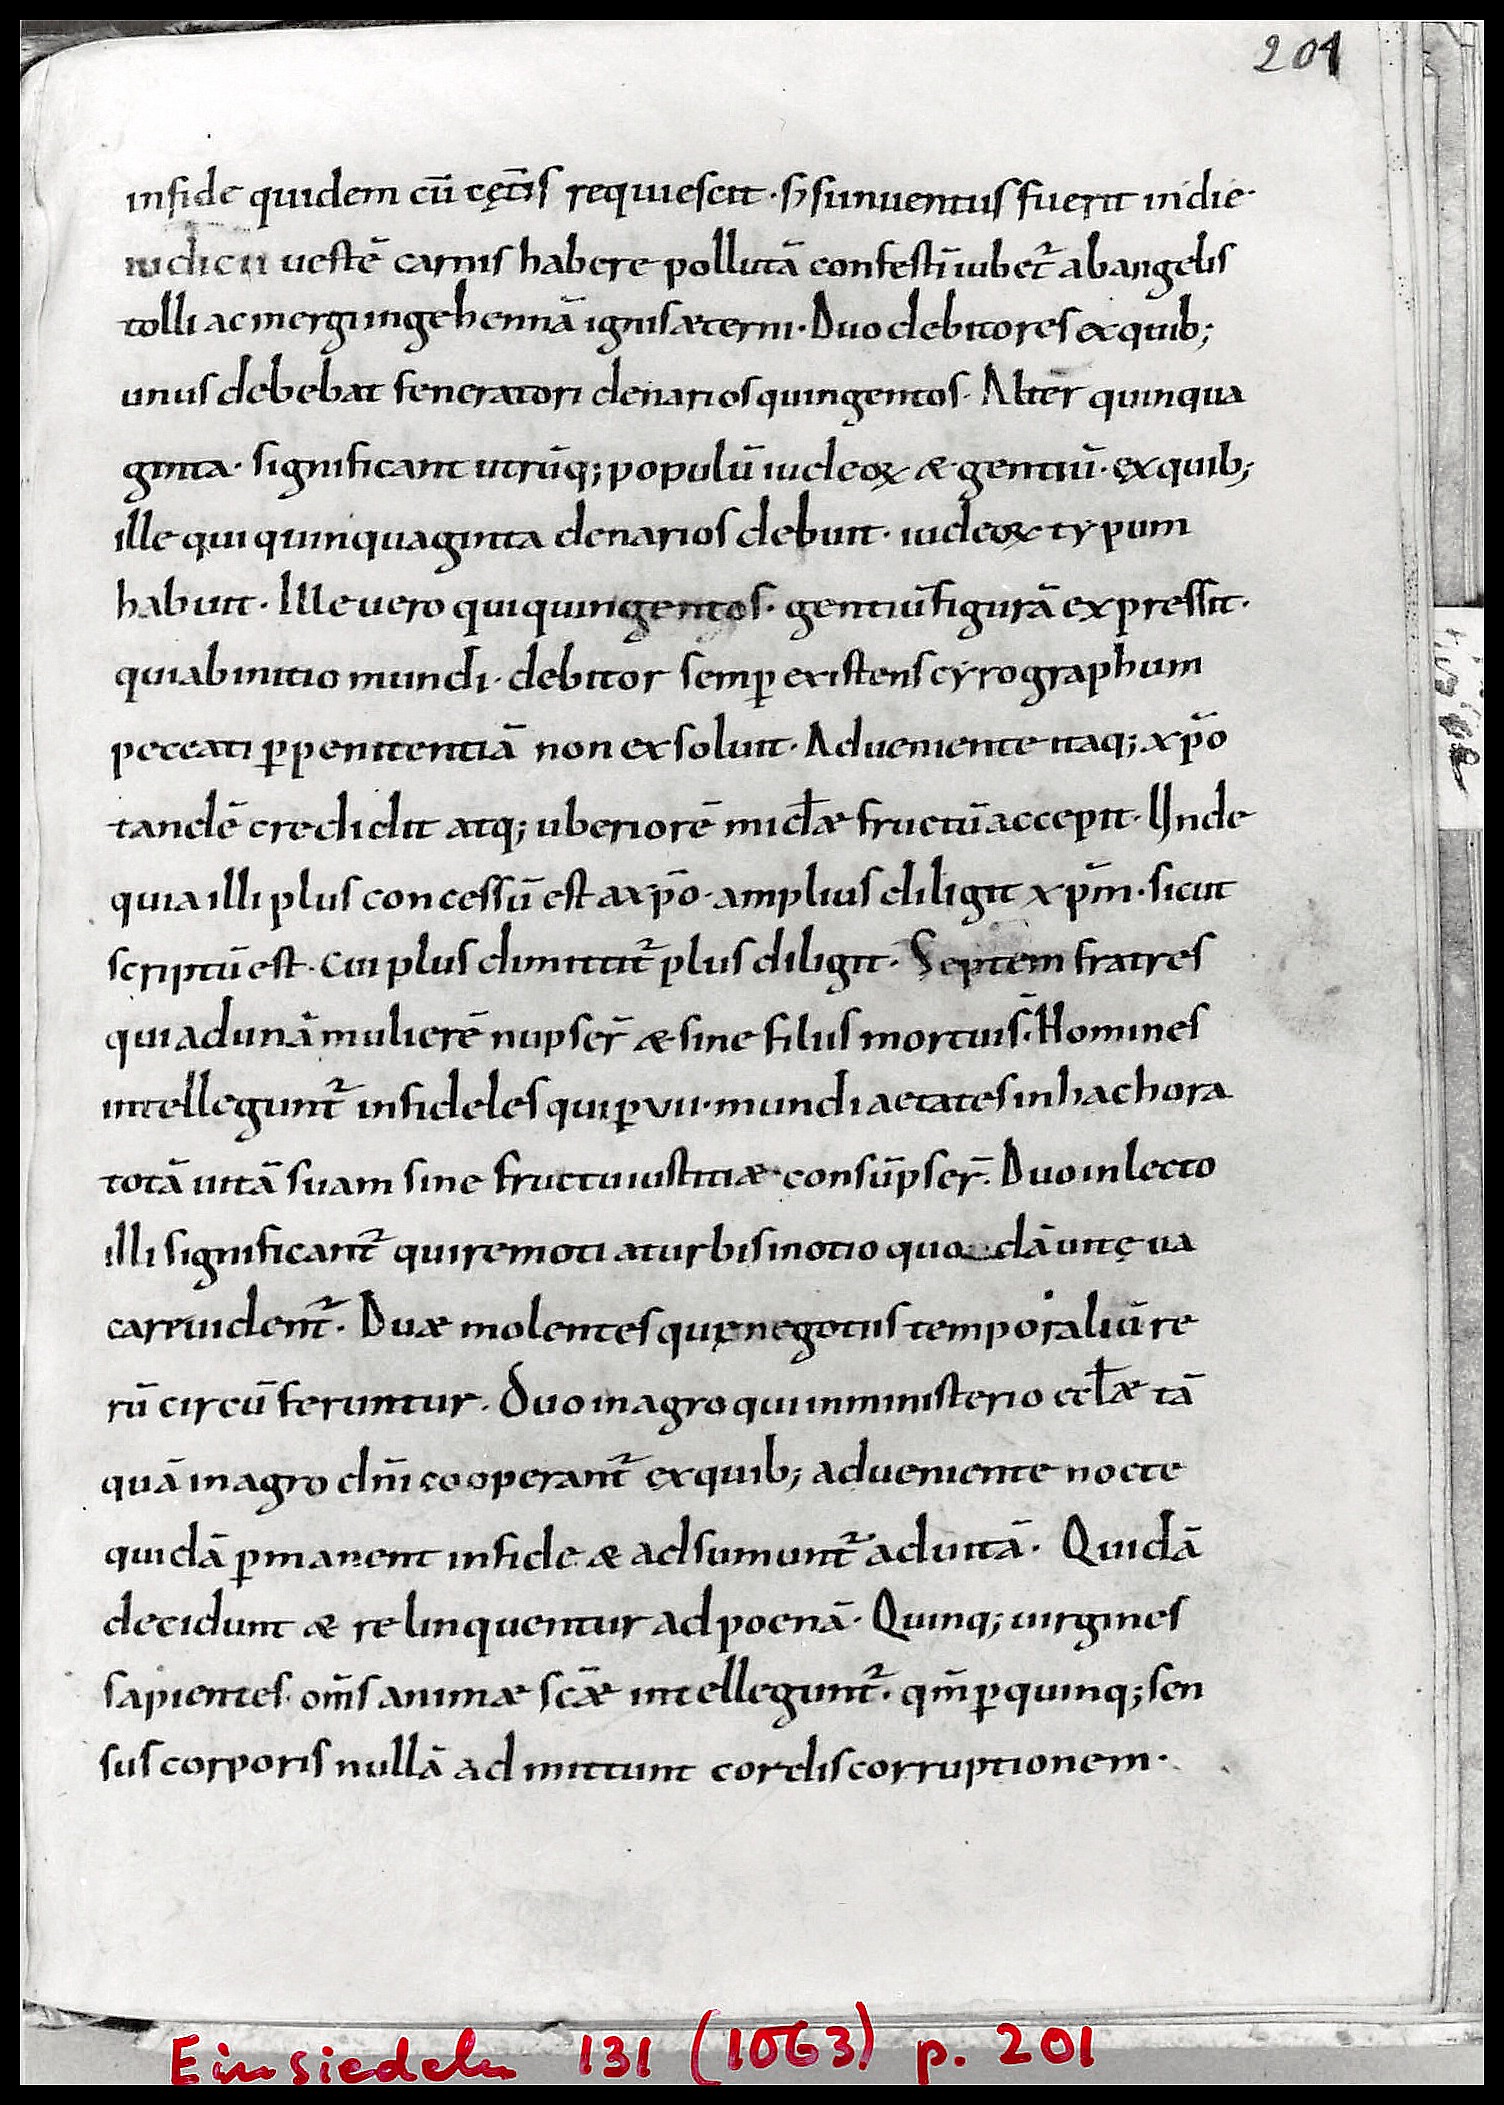 201
infide quidem cū cęt̄is requiescit · sȝ si inuentus fuerit in die·
iudicii uestē carnis habere pollutā confestī iubet᷑ ab angelis
tolli ac mergi in gehennā ignis æterni · Duo debitores ex quib;
unus debebat feneratori denarios quingentos · Alter quinqua
ginta · significant utrūq; populū iudeoꝝ & gentiū · ex quib;
ille qui quinquaginta denarios debuit · iudeoꝝ typum
habuit · Ille uero qui quingentos · gentiū figurā expressit ·
qui ab initio mundi · debitor semꝑ existens cyrographum
peccati ꝑ penitentiā non exsoluit · Adueniente itaq; xp̄o
tandē credidit atq; uberiorē mid̄æ fructū accepit · Unde
quia illi plus concessū est a xp̄o · amplius diligit xp̄m · sicut
scriptū est · cui plus dimittit᷑ plus diligit · Septem fratres
qui ad unā mulierē nupser̄ & sine filiis mortui s̄ · Homines
intellegunt᷑ infideles qui ꝑ vii · mundi aetates in hac hora
totā uitā suam sine fructu iustitiæ consūpser̄ · Duo in lecto
illi significant᷑ qui remoti a turbis in otio quodā uitę ua
care uident᷑ · Duæ molentes quę negotiis temporaliū re
rū circūferuntur · Duo in agro qui in ministerio eccl̄æ tā
quā in agro dn̄i cooperant᷑ ex quib; adueniente nocte
quidā ꝑmanent in fide & adsumunt᷑ ad uitā · Quidā
decidunt & relinquentur ad poenā · Quinq; uirgines
sapientes · om̄s animæ sc̄æ intellegunt᷑ · qm̄ ꝑ quinq; sen
sus corporis nullā admittunt cordis corruptionem ·
Einsiedeln 131 (1063) p. 201